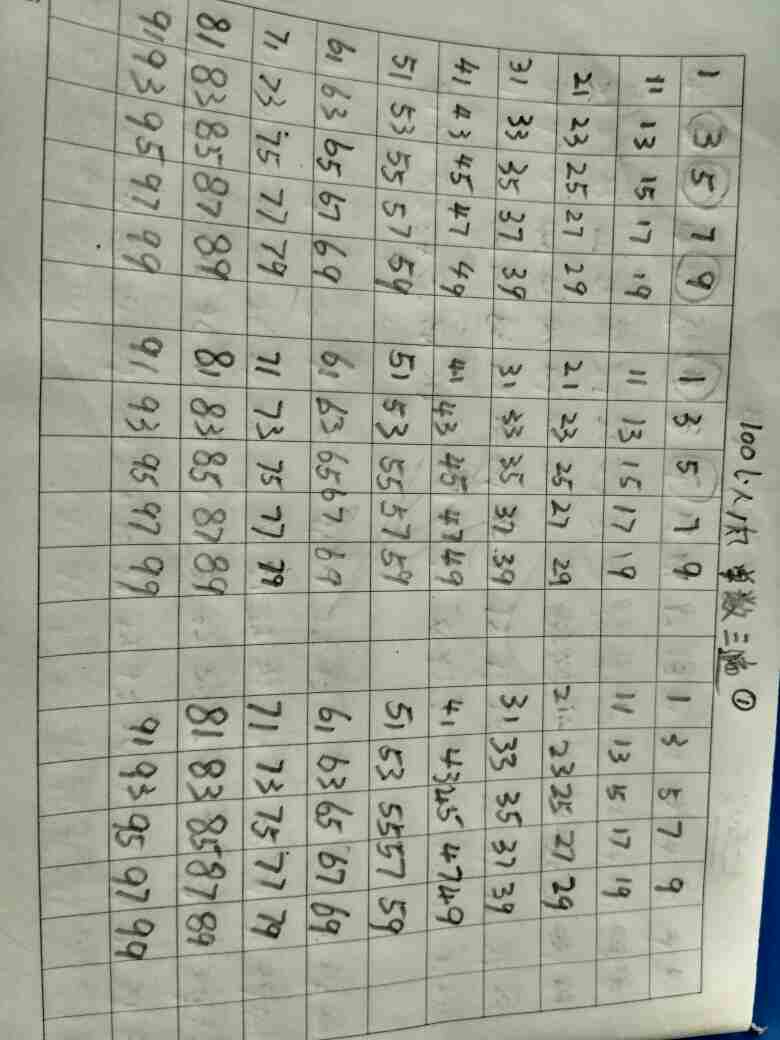 100以内单数三遍①
1 3 5 7 9 1 3 5 7 9 1 3 5 7 9
11 13 15 17 19 11 13 15 17 19 11 13 15 17 19
21 23 25 27 29 21 23 25 27 29 21 23 25 27 29
31 33 35 37 39 31 33 35 37 39 31 33 35 37 39
41 43 45 47 49 41 43 45 47 49 41 43 45 47 49
51 53 55 57 59 51 53 55 57 59 51 53 55 57 59
61 63 65 67 69 61 63 65 67 69 61 63 65 67 69
71 73 75 77 79 71 73 75 77 79 71 73 75 77 79
81 83 85 87 89 81 83 85 87 89 81 83 85 87 89
91 93 95 97 99 91 93 95 97 99 91 93 95 97 99